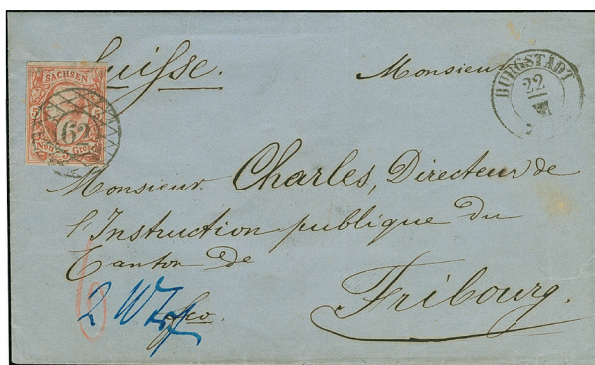 Suisse.
Monsieur
SACHSEN
62
BURGSTÄDT
22
Monsieur Charles, Directeur de
l'Instruction publique du
Canton de
Fribourg.
fco.